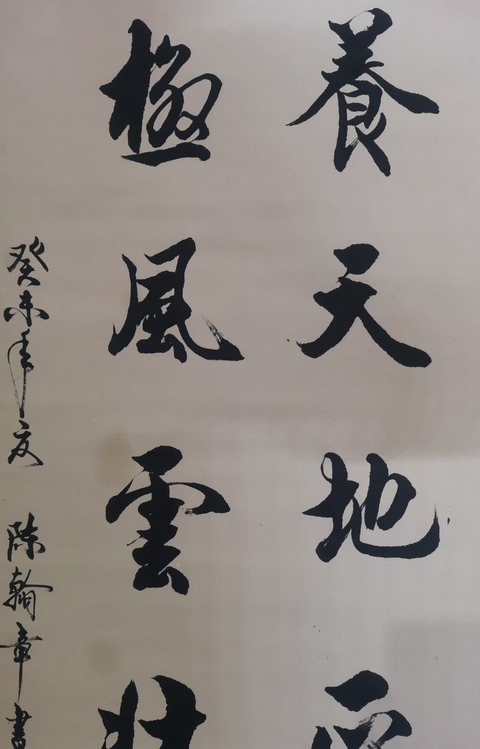 養天地
極風雲壯
癸未年夏 陳翰章書